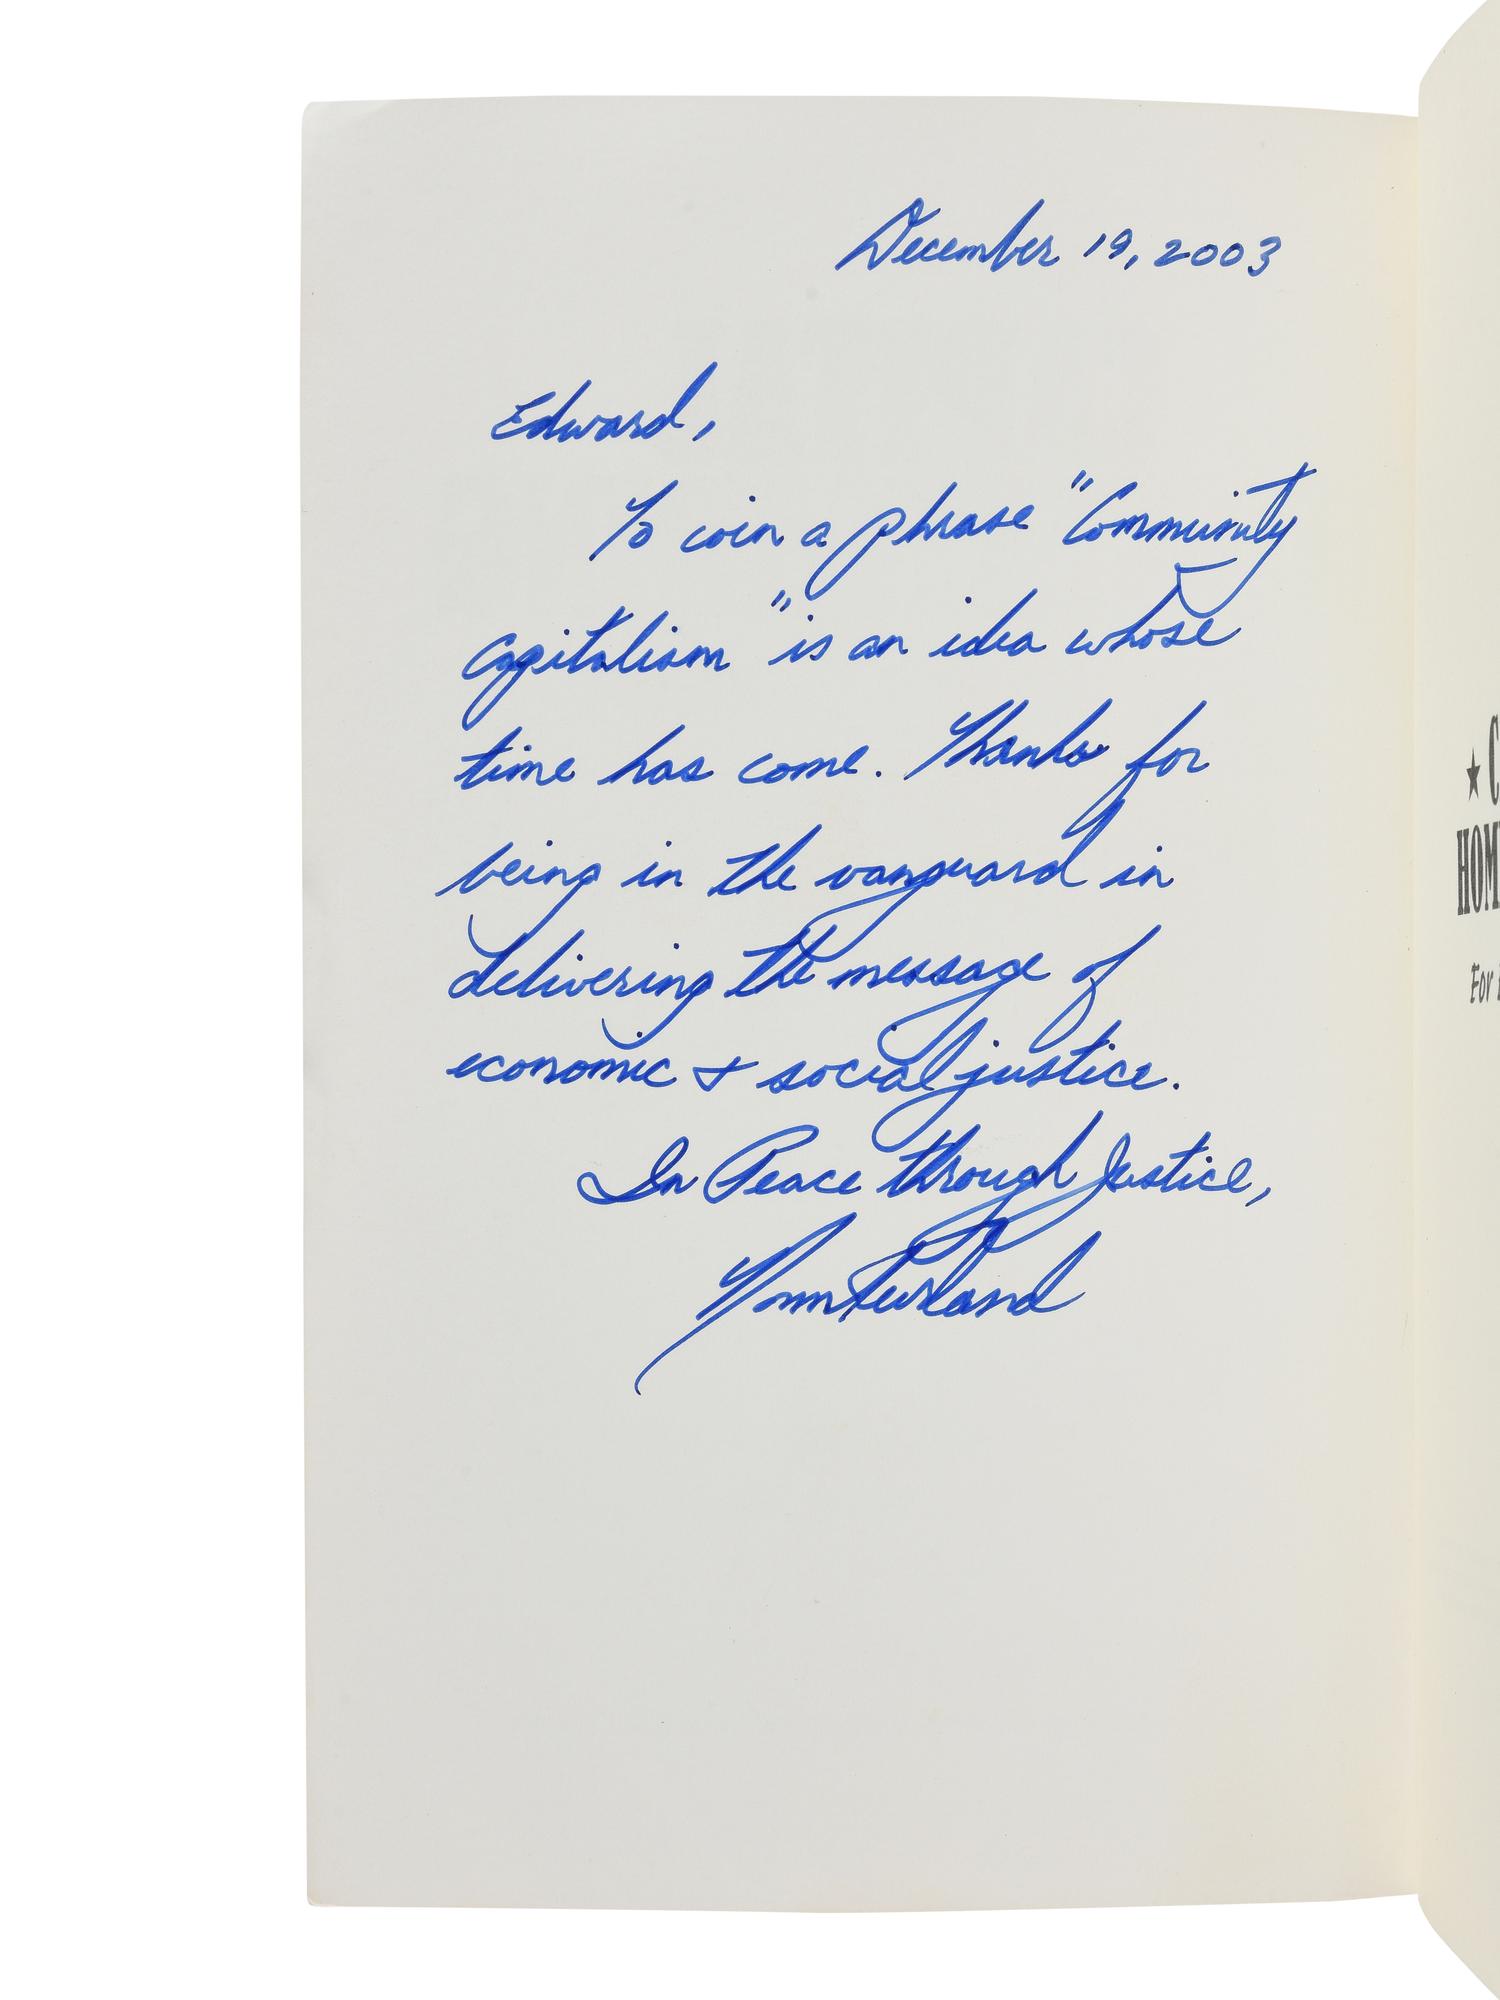 December 19, 2003
Edward,
To coin a phrase "Community
Capitalism" is an idea whose
time has come. Thanks for
being in the vanguard in
delivering the message of
economic & social justice.
In Peace through Justice,
★ C
HOM
For